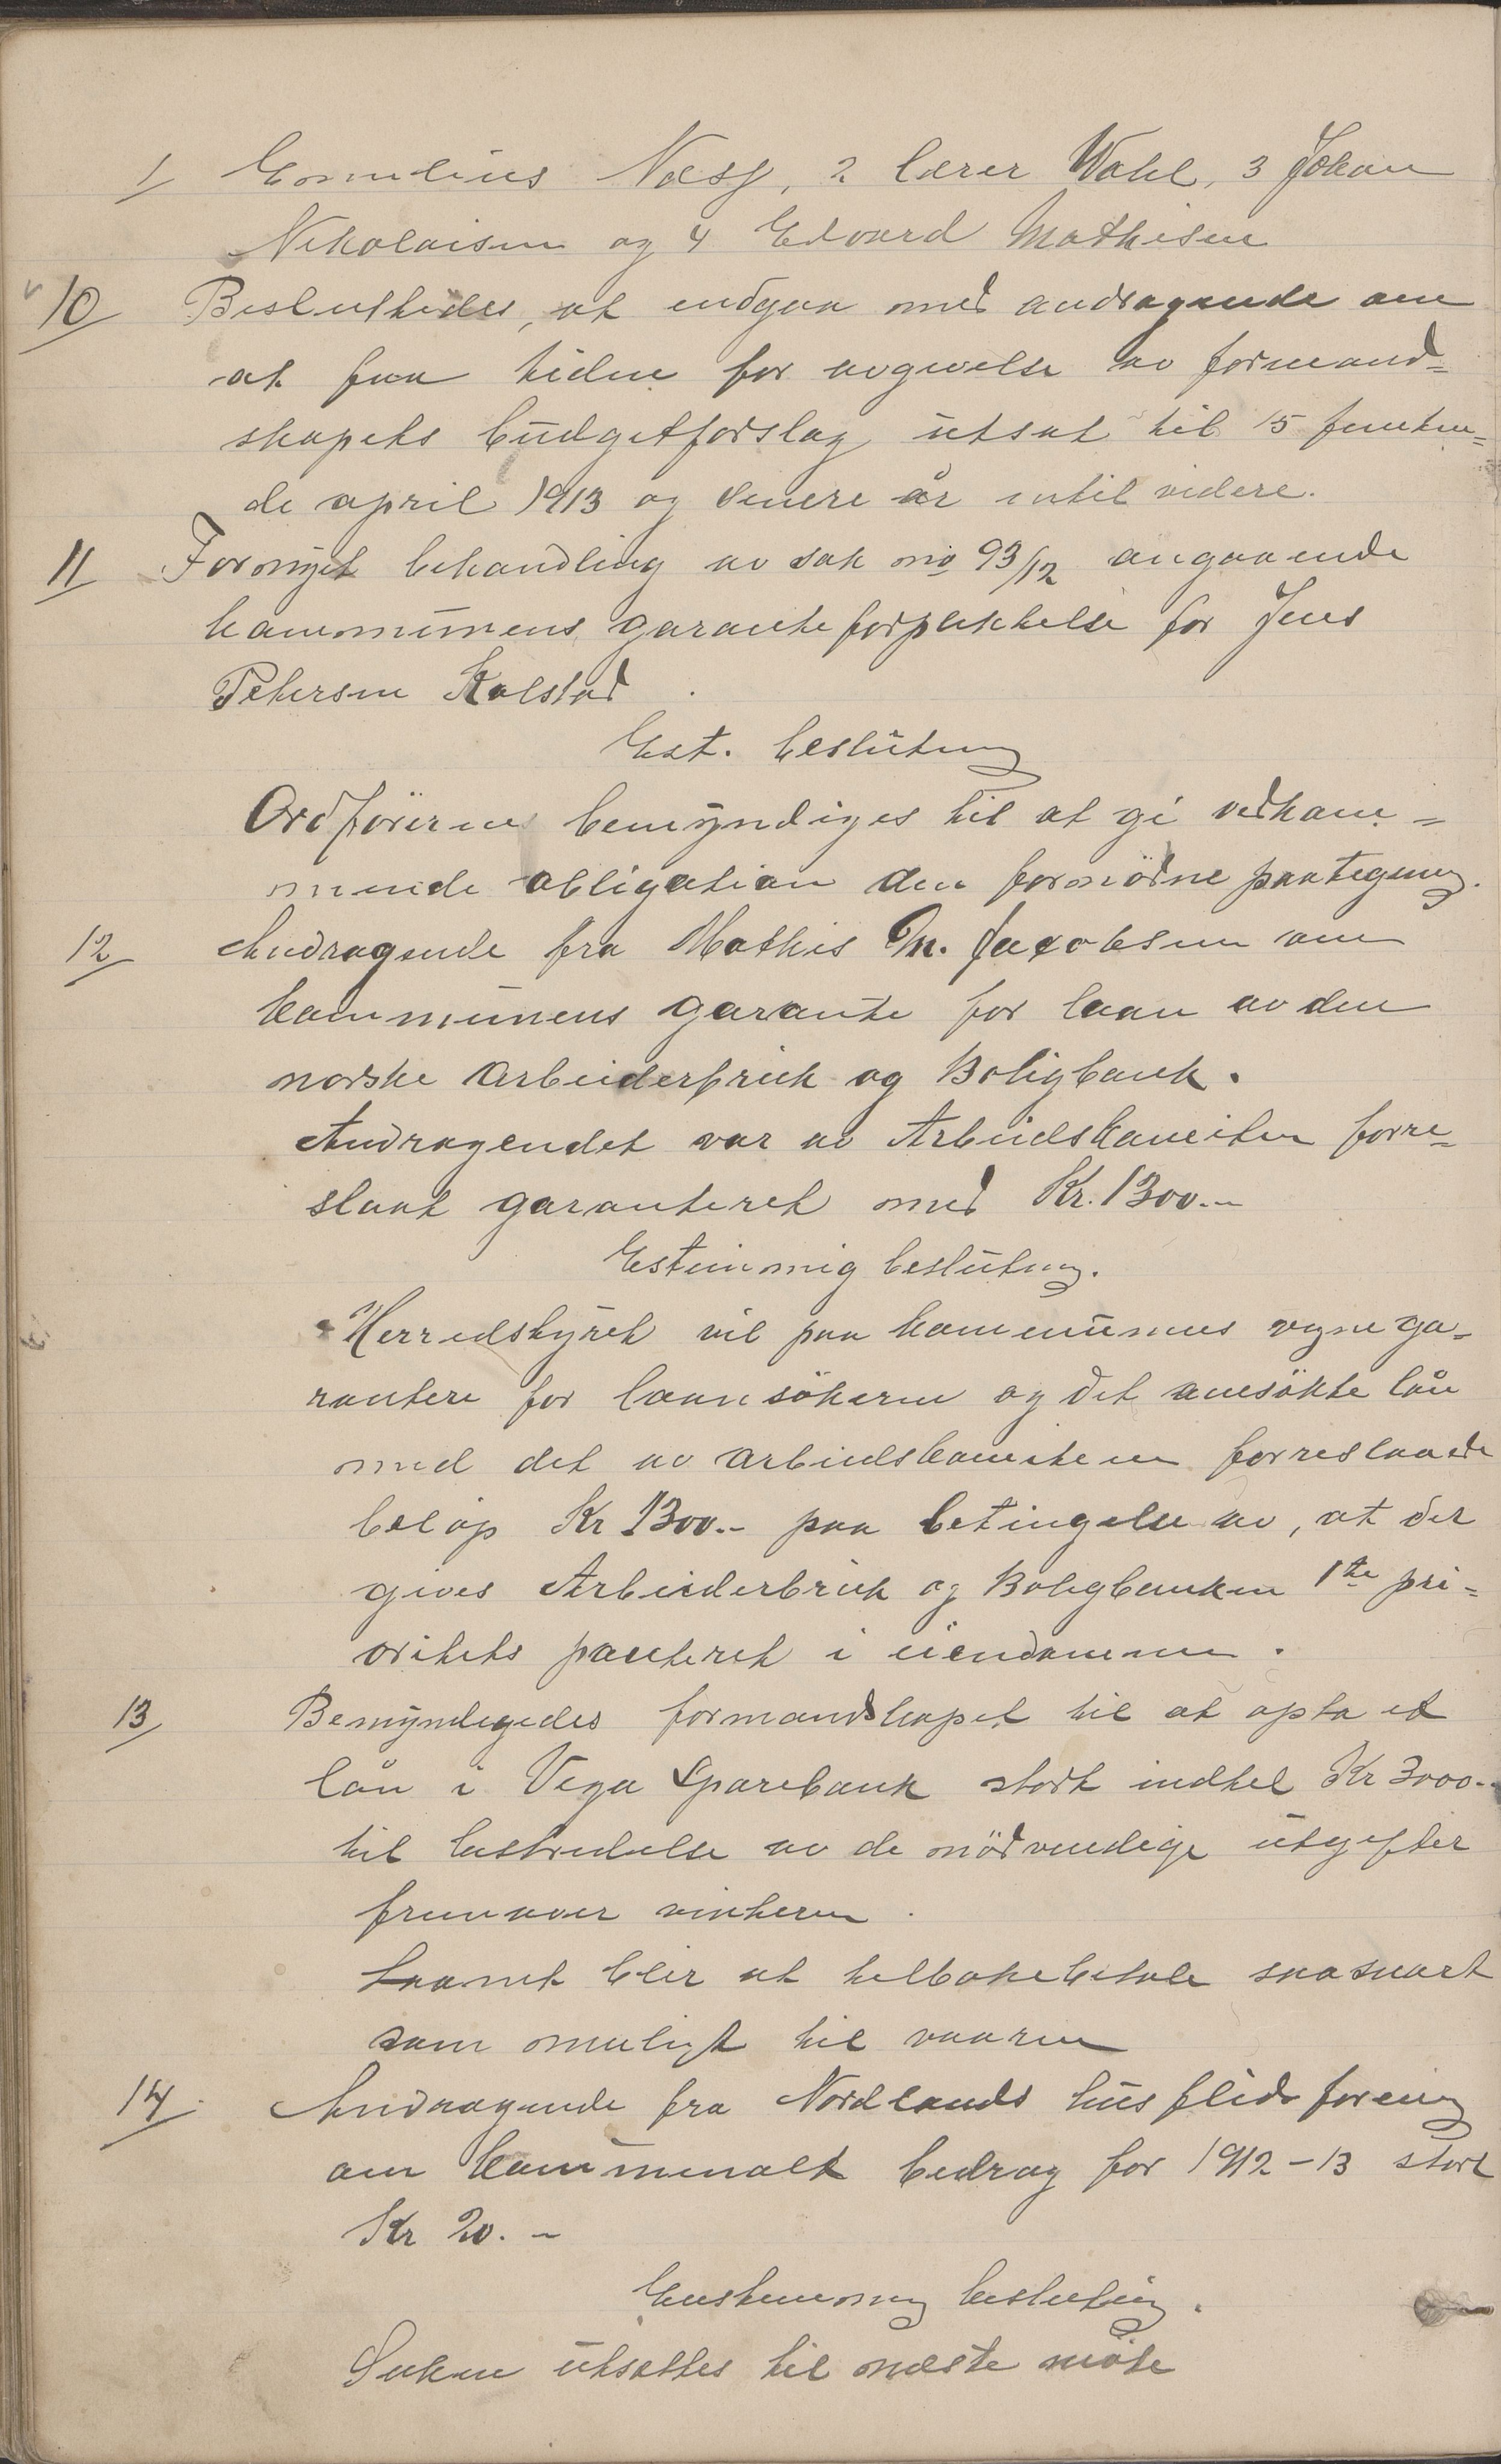 1/ Cornelius Næss, 2 lærer Wahl, 3 Johan
Nikolaisen og 4 Edvard Mathisen
10/ Besluttedes, at indgaa med andragende om
at faa tiden for avgivelse av formand=
skapets budgetforslag utsat til 15 femten=
de april 1913 og senere år intil videre.
11/ Fornyet behandling av sak no 93/12 angaaende
kommunens garantiforpliktelse for Jens
Petersen Kolstad.
Est. beslutning
Ordföreren bemyndiges til at gi vedkom=
mende obligation den fornödne paategning.
12/ Andragende fra Mathis M. Jacobsen om
kommunens garanti for laan av den
norske Arbeiderbruk og Boligbank.
Andragendet var av Arbeidskomiten forre=
slaat garanteret med Kr. 1300.-
Estemmig beslutning.
Herredstyret vil paa kommunens vegne ga=
rantere for laansökeren og det ansökte lån
med det av arbeidskomiteen forreslaaede
belöp Kr 1300.- paa betingelse av, at der
gives Arbeiderbruk og Boligbanken 1ste pri=
oritets panteret i eiendommen.
13/ Bemyndigedes formandskapet til at opta et
lån i Vega Sparebank stort indtil Kr 3000.-
til bestridelse av de nödvendige utgifter
fremover vinteren.
Laanet blir at tilbakebetale saasnart
som muligt til vaaren
14/ Andragende fra Nordlands husflidsforening
om kommunalt bedrag for 1912-13 stort
Kr 20.-
Enstemmig beslutning.
Saken utsattes til næste möte